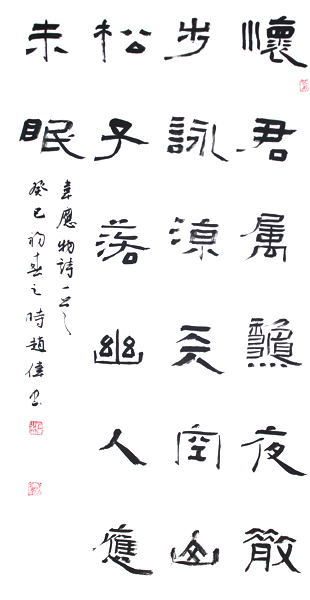 懷君属龝夜散
步詠涼天空山
松子落幽人應
未眠
韋應物詩一首
癸巳初春之時趙偉書